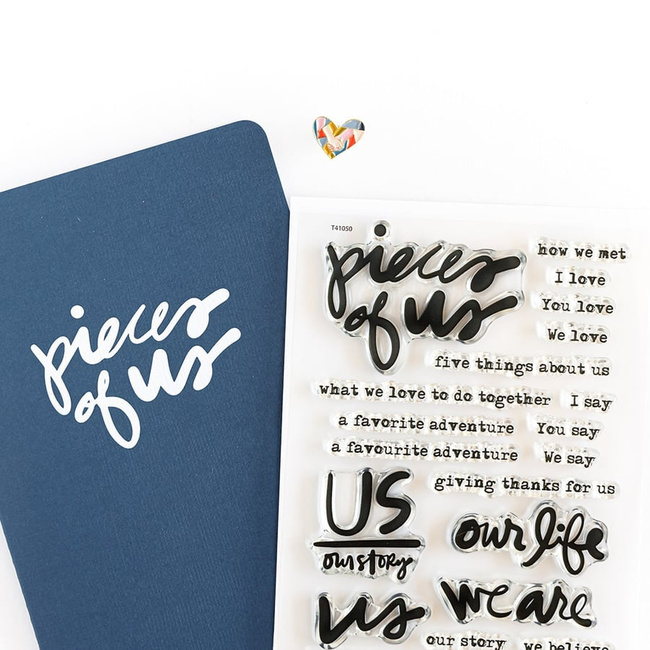 pieces
of us
T41050
pieces
of us
how we met
I love
You love
We love
five things about us
what we love to do together
I say
a favorite adventure
You say
a favourite adventure
We say
giving thanks for us
US
our story
our life
us
we are
our story
we believe